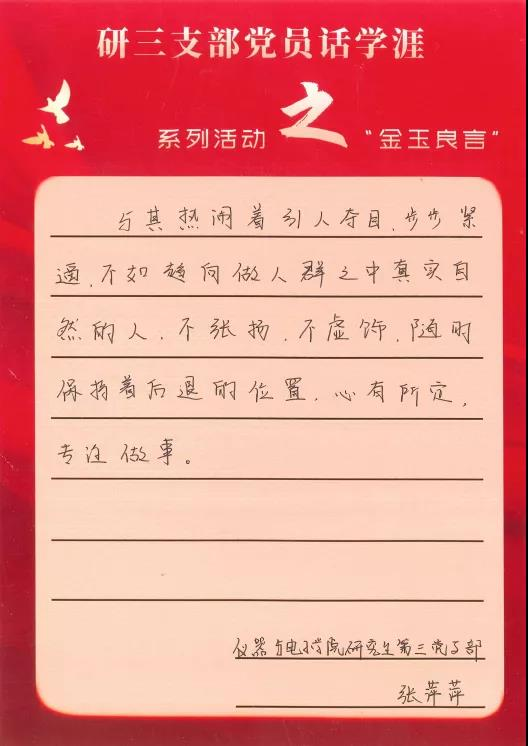 研三支部党员话学涯
系列活动之“金玉良言”
与其热闹着引人夺目,步步紧
逼,不如趋向做人群之中真实自
然的人,不张扬,不虚饰,随时
保持着后退的位置,心有所定,
专注做事。
仪器与电子学院研究生第三党支部
张萍萍